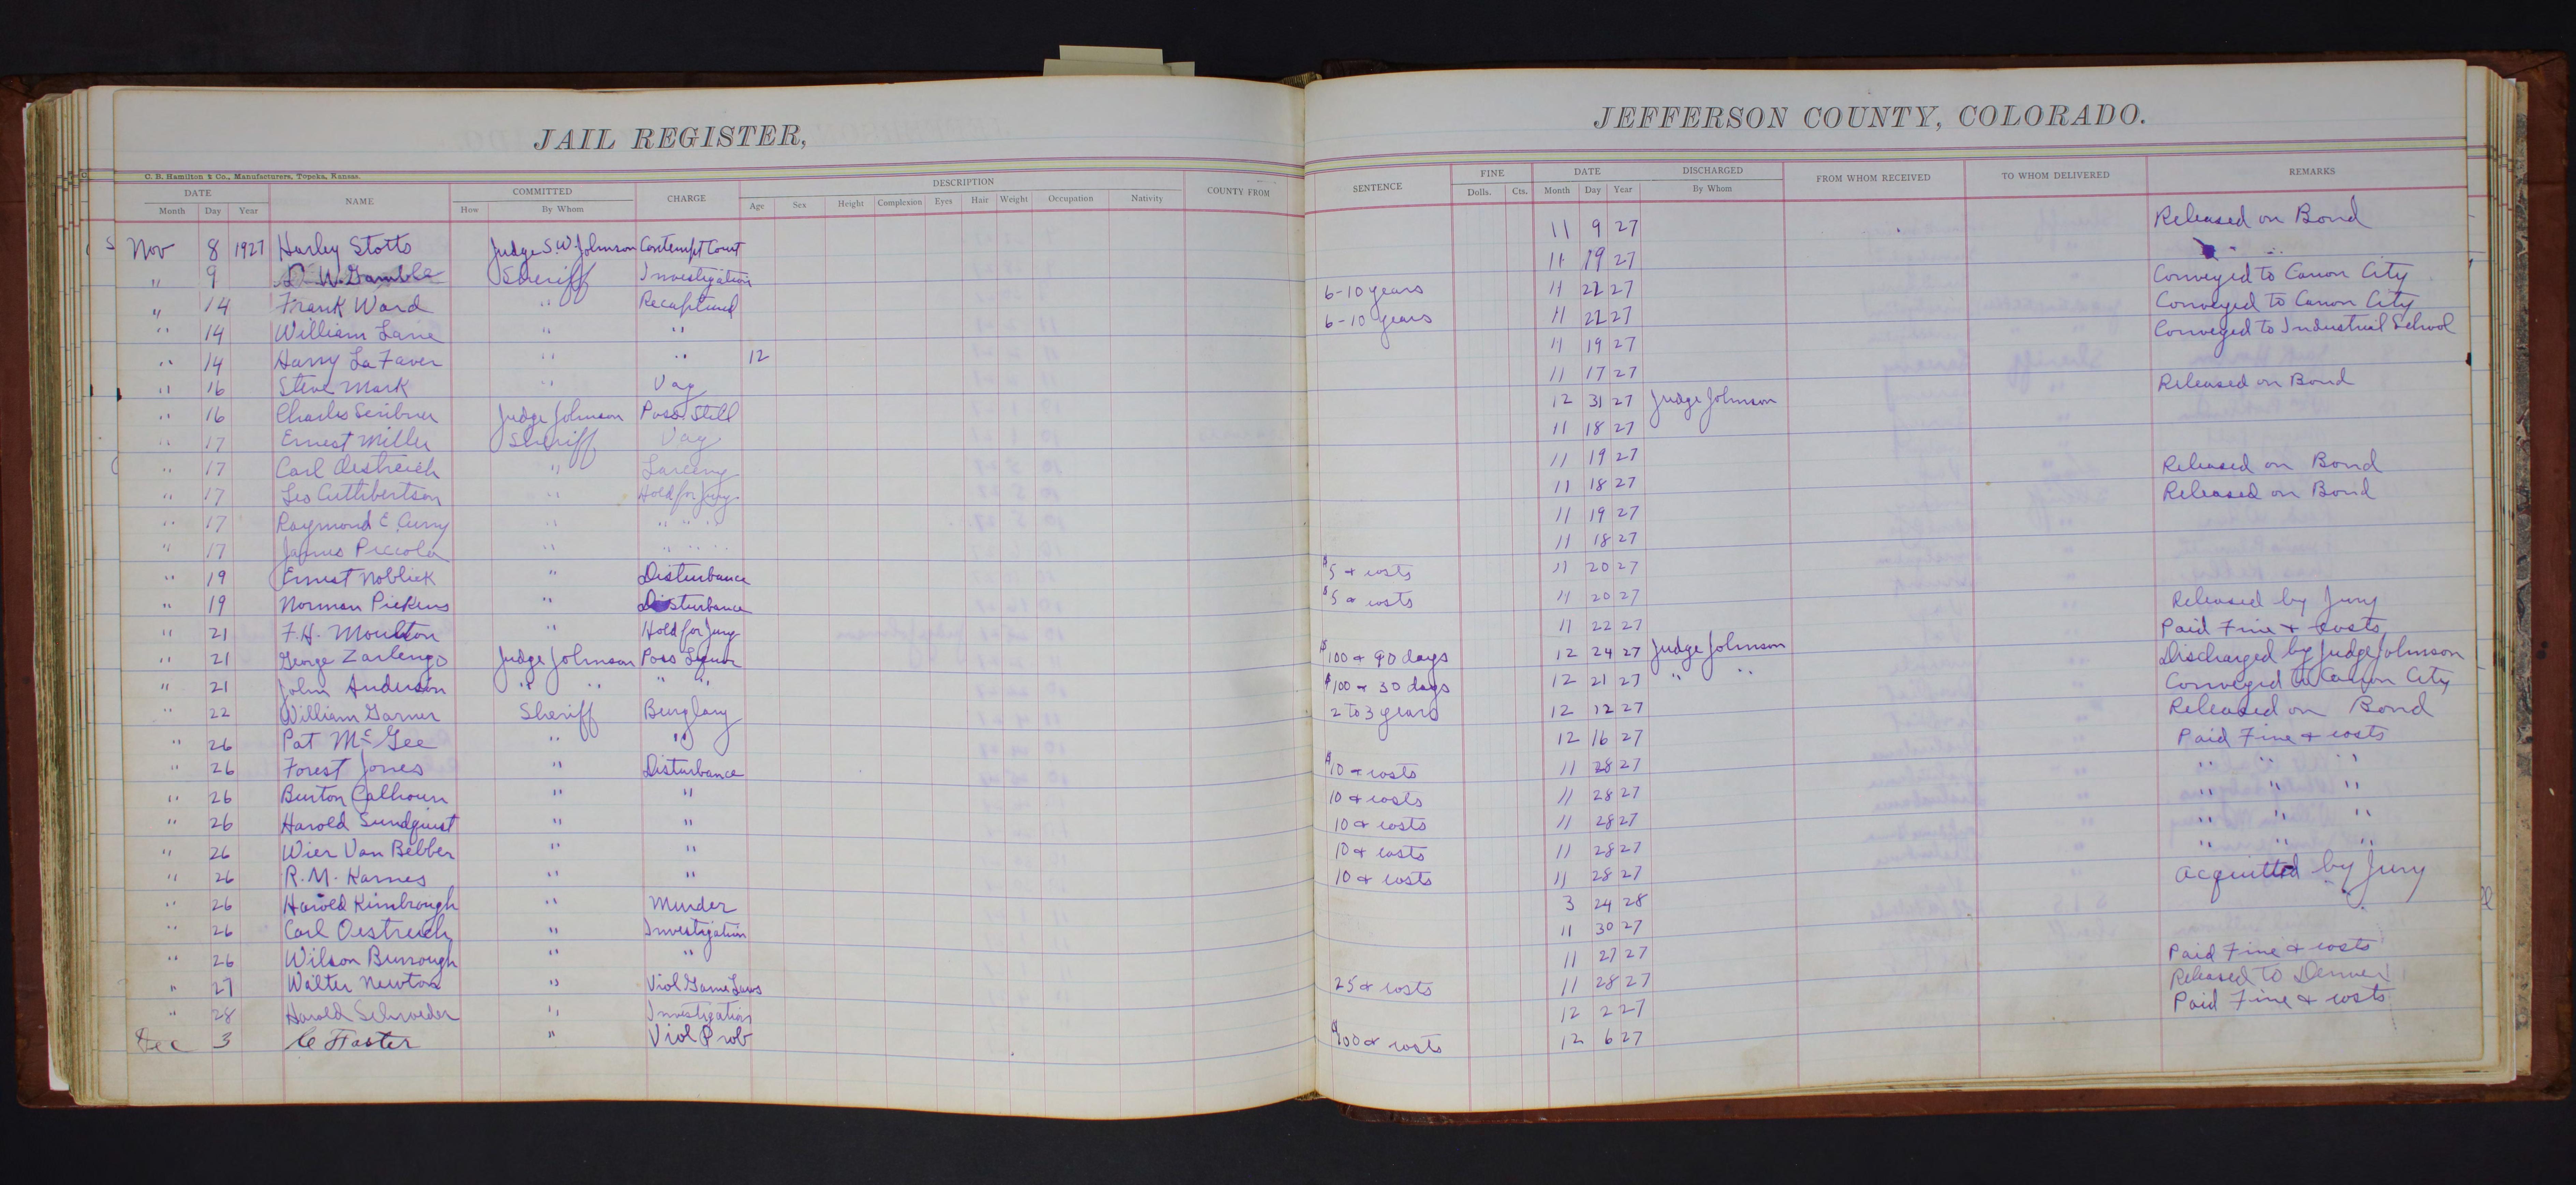 JAIL REGISTER,
JEFFERSON COUNTY, COLORADO.
C. B. Hamilton & Co., Manufacturers, Topeka, Kansas.
DATE NAME COMMITTED CHARGE DESCRIPTION COUNTY FROM SENTENCE FINE DATE DISCHARGED FROM WHOM RECEIVED TO WHOM DELIVERED REMARKS
Month Day Year How By Whom Age Sex Height Complexion Eyes Hair Weight Occupation Nativity Dolls. Cts. Month Day Year By Whom
Nov 8 1927 Harley Stotts Judge S.W. Johnson Contempt Court 11 9 27 Released on Bond
" 9 D. W. Gamble Sheriff Investigation 11 19 27 " "
" 14 Frank Ward " Recaptured 6-10 years 11 22 27 Conveyed to Canon City
" 14 William Lane " " 6-10 years 11 22 27 Conveyed to Canon City
" 14 Harry La Faver " " 12 11 19 27 Conveyed to Industrial School
" 16 Steve Mark " Vag 11 17 27
" 16 Charles Scribner Judge Johnson Poss. Still 12 31 27 Judge Johnson Released on Bond
" 17 Ernest Miller Sheriff Vag 11 18 27
" 17 Carl Oestreich " Larceny 11 19 27
" 17 Leo Cuthbertson " Hold for Jury 11 18 27 Released on Bond
" 17 Raymond E. Curry " " " " 11 19 27 Released on Bond
" 17 James Piccola " " " " 11 18 27
" 19 Ernest Noblick " Disturbance $5 + costs 11 20 27
" 19 Norman Pickens " Disturbance $5 + costs 11 20 27
" 21 F.H. Moulton " Hold for Jury 11 22 27 Released by Jury
" 21 George Zarlengo Judge Johnson Poss Liquor $100 + 90 days 12 24 27 Judge Johnson Paid Fine + costs
" 21 John Anderson " " " " $100 + 30 days 12 21 27 " " Discharged by Judge Johnson
" 22 William Garner Sheriff Burglary 2 to 3 years 12 12 27 Conveyed to Canon City
" 26 Pat McGee " " 12 16 27 Released on Bond
" 26 Forest Jones " Disturbance $10 + costs 11 28 27 Paid Fine + costs
" 26 Burton Calhoun " " 10 + costs 11 28 27 " " "
" 26 Harold Sundquist " " 10 + costs 11 28 27 " " "
" 26 Wier Van Bebber " " 10 + costs 11 28 27 " " "
" 26 R.M. Karnes " " 10 + costs 11 28 27 " " "
" 26 Harold Kimbrough " Murder 3 24 28 Acquitted by Jury
" 26 Carl Oestreich " Investigation 11 30 27
" 26 Wilson Burrough " " 11 27 27
" 27 Walter Newton " Viol Game Laws 25 + costs 11 28 27 Paid Fine + costs
" 28 Harold Schroeder " Investigation 12 2 27 Released to Denver
Dec 3 " Viol Prob $100 + costs 12 6 27 Paid Fine + costs